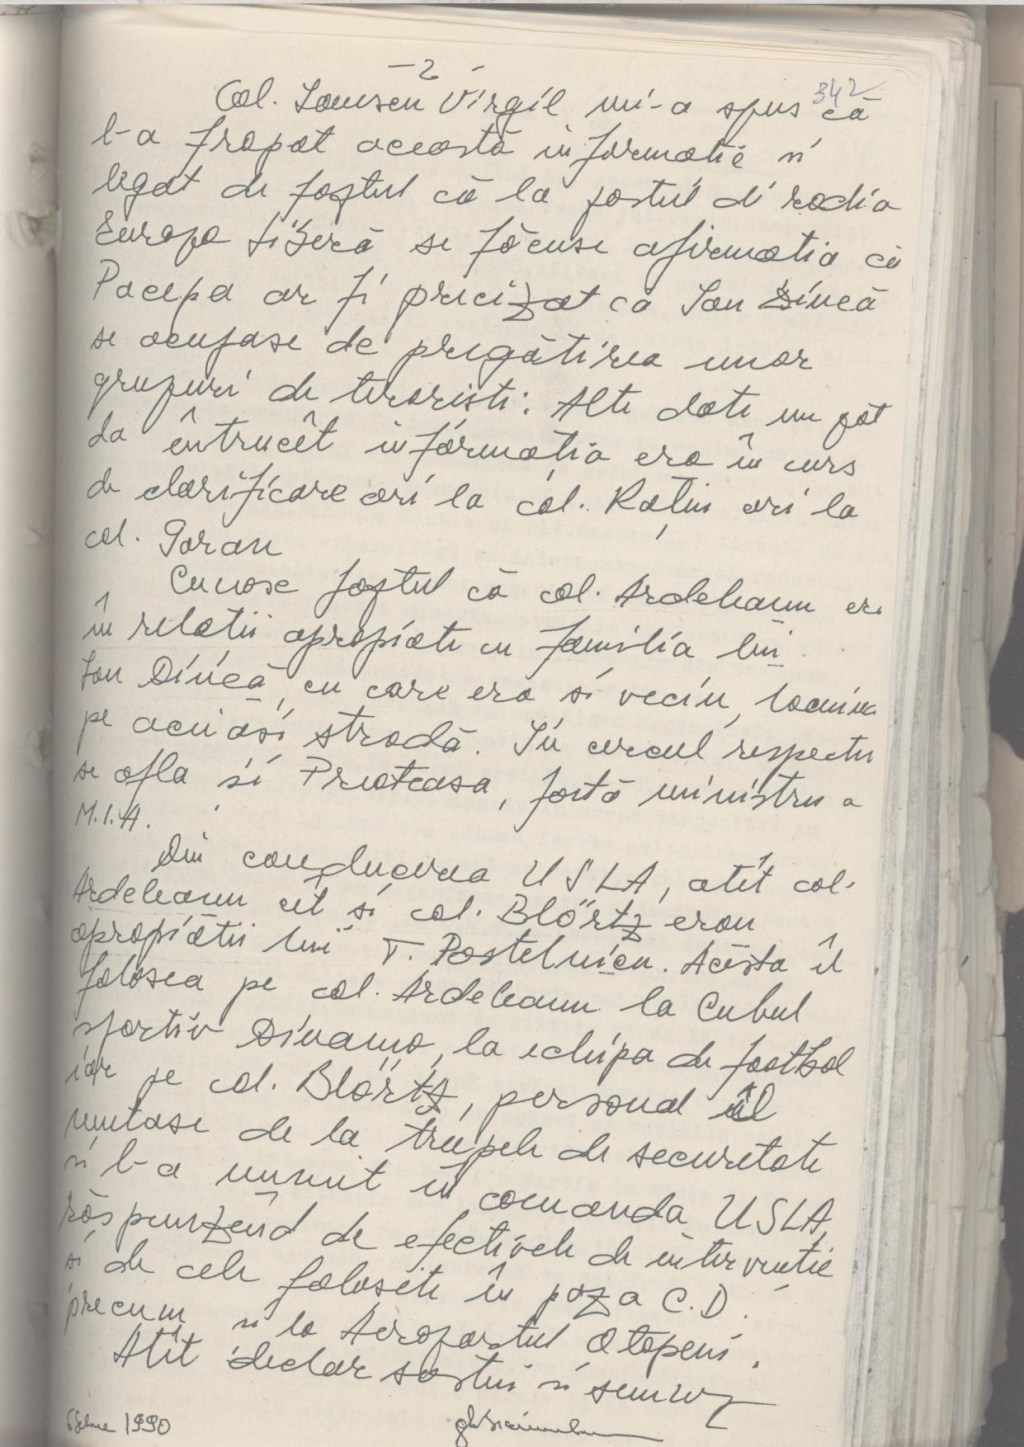 - 2 -
342
Col. Ionescu Virgil mi-a spus că
l-a frapat această informație și
legat de faptul că la postul de radio
Europa Liberă se făcuse afirmația că
Pacepa ar fi precizat că Ion Dincă
se ocupase de pregătirea unor
grupuri de teroriști. Alte date nu pot
da întrucît informația era în curs
de clarificare ori la col. Rațiu ori la
col. Goran
Cunosc faptul că col. Ardeleanu era
în relații apropiate cu familia lui
Ion Dincă, cu care era și vecin, locuind
pe aceiași stradă. În cercul respectiv
se afla și Pruteasa, fostă ministru a
M.I.A.
Din conducerea USLA, atît col.
Ardeleanu cît și col. Blörtz erau
apropiații lui T. Postelnicu. Acesta îl
folosea pe col. Ardeleanu la Cubul
sportiv Dinamo, la echipa de football
iar pe col. Blörtz, personal îl
mutase de la trupele de securitate
și l-a numit în comanda USLA
răspunzând de efectivele de intervenție
și de cele folosite în paza C.D.
precum și la Aeroportul Otopeni.
Atît declar susțin și semnez
1990